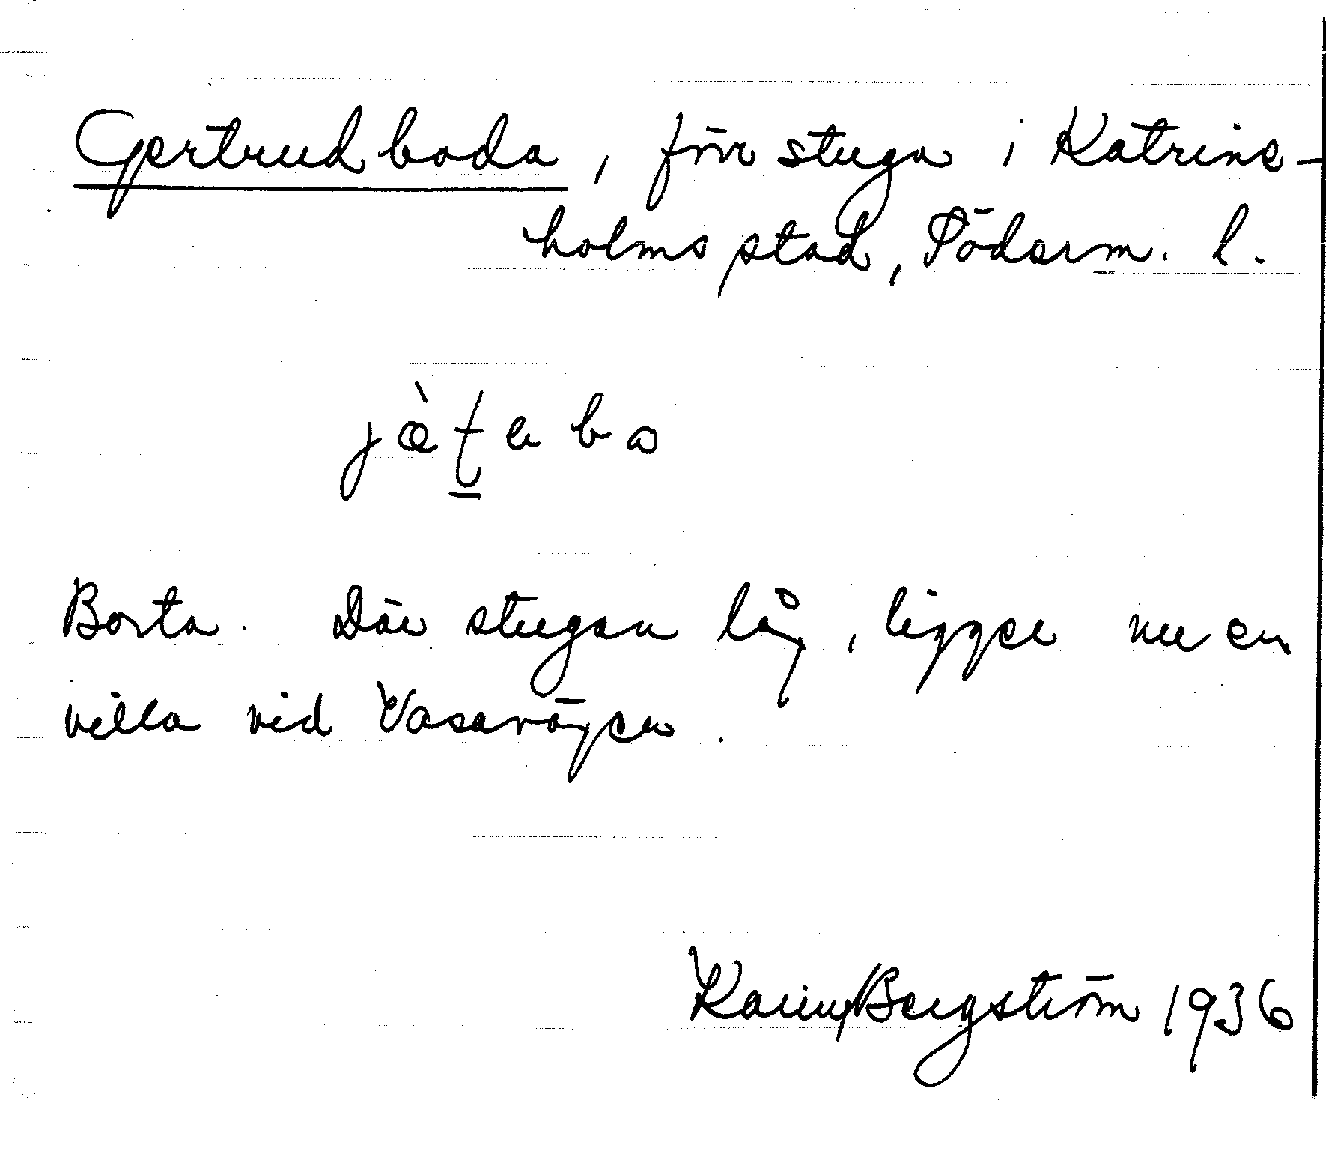 Gertrudboda, förr stuga i Katrine-
holms stad, Söderm. l.
Borta. Där stugan låg, ligger nu en
villa vid Vasavägen.
Karin Bergström 1936